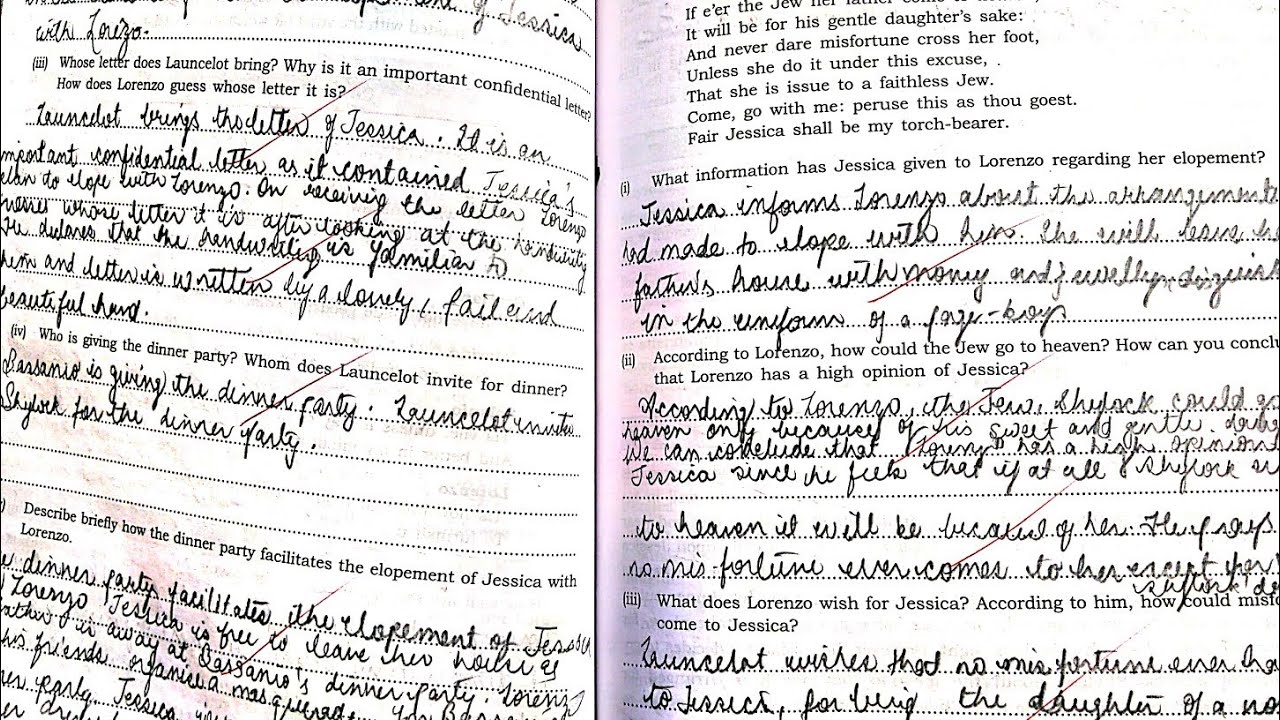 with Lorezo.
(iii) Whose letter does Launcelot bring? Why is it an important confidential letter?
How does Lorenzo guess whose letter it is?
Launcelot brings the letter of Jessica. It is an
mportant confidential letter as it contained Jessica's
plan to elope with Lorenzo. On receiving the letter Lorenzo
whose letter it is after looking at the
He declares that the handwriting is familiar to
him and letter is written by a lovely, fail and
beautiful hand.
(iv) Who is giving the dinner party? Whom does Launcelot invite for dinner?
Bassanio is giving the dinner party. Launcelot invites
Shylock for the dinner party.
Describe briefly how the dinner party facilitates the elopement of Jessica with
Lorenzo.
dinner party facilitates the elopement of Jessica
Lorenzo Jessica is free to leave her house as
father is away at Bassanio's dinner party. Lorenz
his friends organise a masquerade
party. Jessica
If e'er the Jew her father come to
It will be for his gentle daughter's sake:
And never dare misfortune cross her foot,
Unless she do it under this excuse,
That she is issue to a faithless Jew.
Come, go with me: peruse this as thou goest.
Fair Jessica shall be my torch-bearer.
(i) What information has Jessica given to Lorenzo regarding her elopement?
Jessica informs Lorenzo about the arrangements
made to elope with him. She will leave he
father's house with money and jewellyn disguis
in the uniform of a page-boy
(ii) According to Lorenzo, how could the Jew go to heaven? How can you conclu
that Lorenzo has a high opinion of Jessica?
According to Lorenzo, the Jew, Shylock could go
heaven only because of his sweet and gentle
We can conclude that Lorenzo has a high opinion
Jessica since he feels that if at all Shylock
to heaven it will be because of her. He prays
no mis-fortune ever comes to her except
(iii) What does Lorenzo wish for Jessica? According to him, how could misf
come to Jessica?
Launcelot wishes that no mis fortune ever
to Jessica, for being the daughter of a